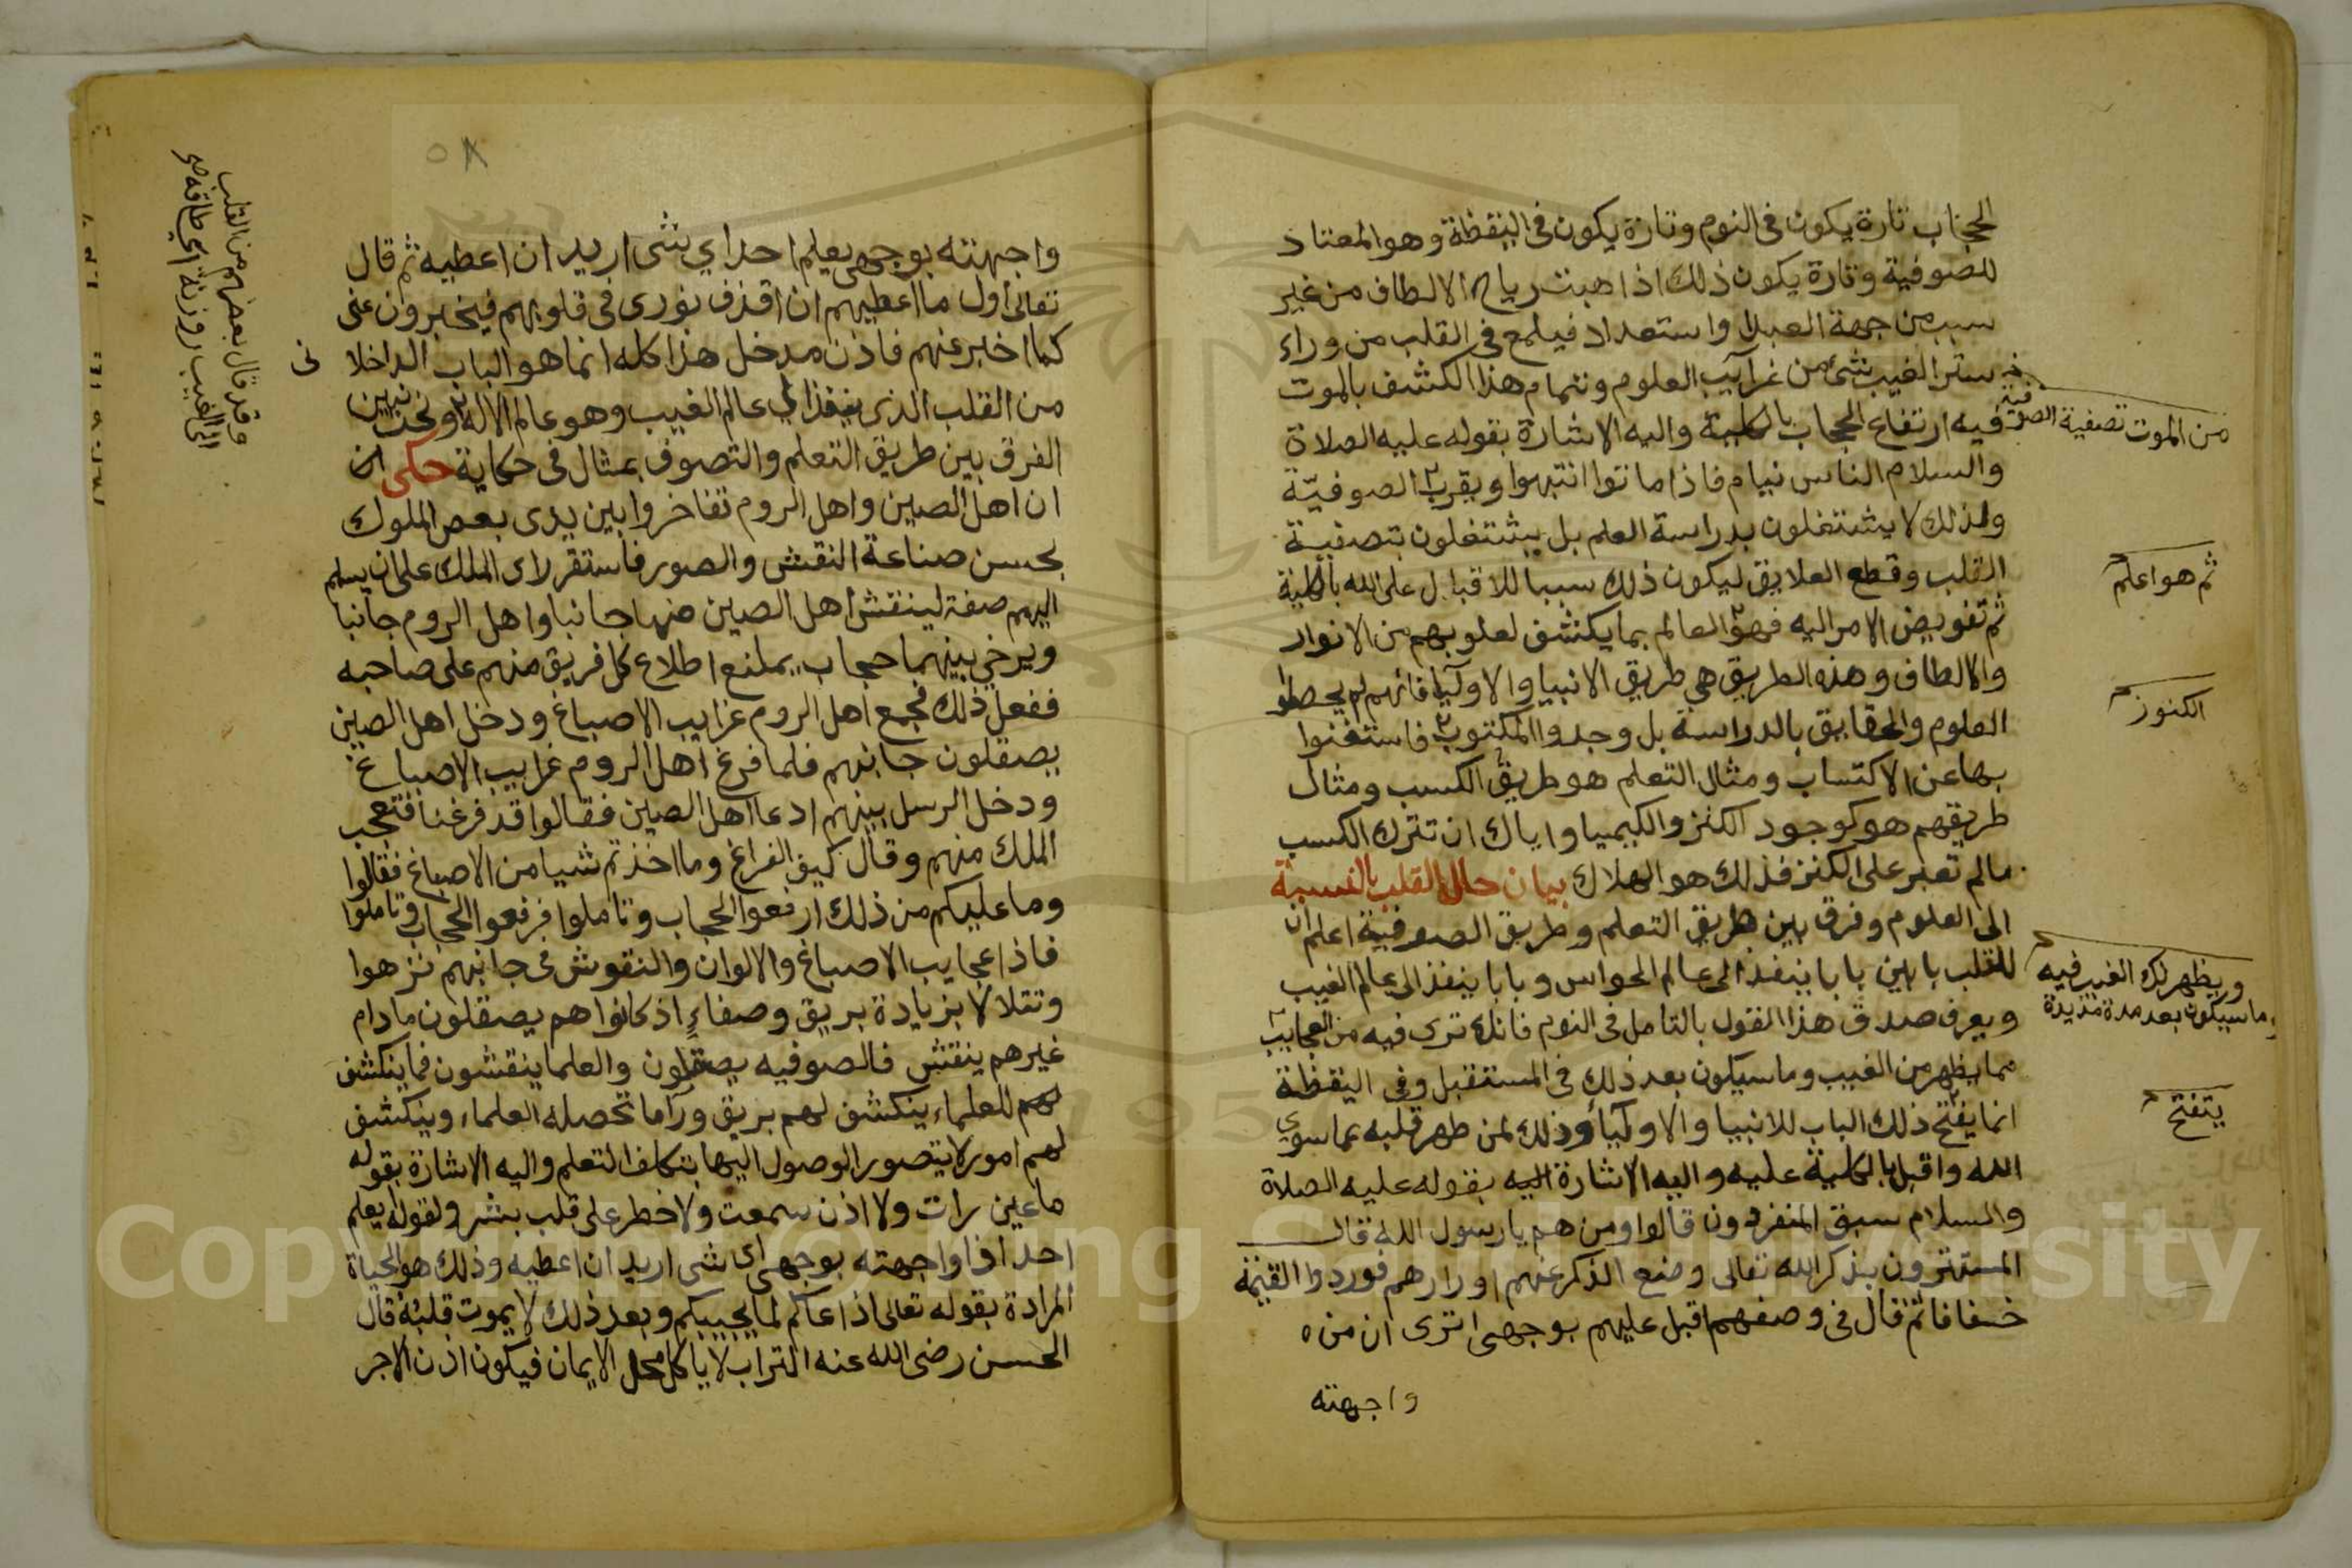 الحجاب تارة يكون فى النوم وتارة يكون فى اليقظة وهو المعتاد
للصوفية وتارة يكون ذلك اذا هبت رياح الالطاف من غير
سبب من جهة العبد لا واستعداد فيلمع فى القلب من وراء
ستر الغيب شئ من غرآيب العلوم وتمام هذا الكشف بالموت
فيه ارتفاع الحجاب بالكلية واليه الاشارة بقوله عليه الصلاة
من الموت تصفية الصوفية
والسلام الناس نيام فاذا ماتوا انتبهوا ويقرب الصوفيّة
ولذلك لا يشتغلون بدراسة العلم بل يشتغلون بتصفية
القلب وقطع العلايق ليكون ذلك سببا للاقبال على الله بالكلية
ثم هو اعلم
ثم تفويض الامر اليه فهو العالم بما يكشف لقلوبهم من الانوار
والالطاف وهذه الطريق هي طريق الانبيا والاوليآ فانهم لم يحصلوا
الكنوز
العلوم والحقايق بالدراسة بل وجدوا المكتوب فاستغنوا
بها عن الاكتساب ومثال التعلم هو طريق الكسب ومثال
طريقهم هو كوجود الكنز والكيميا واياك ان تترك الكسب
مالم تعبر على الكنز فذلك هو الهلاك بيان حال القلب بالنسبة
الى العلوم وفرق بين طريق التعلم وطريق الصوفية اعلم ان
للقلب بابين بابا ينفذ الى عالم الحواس وبابا ينفذ الى عالم الغيب
ويظهر لك الغيب فيه
وما سيكون بعد مدة مديدة
ويعرف صدق هذا القول بالتامل فى النوم فانك ترى فيه من العجايب
مما يظهر من الغيب وما سيكون بعد ذلك فى المستقبل وفى اليقظة
يتفتح
انما يفتح ذلك الباب للانبيا والاوليآ وذلك لمن طهر قلبه عما سوي
الله واقبل بالكلية عليه واليه الاشارة اليه بقوله عليه الصلاة
والسلام سبق المنفردون قالوا ومن هم يا رسول الله قال
المستهترون بذكر الله تعالى وضع الذكر عنهم اورارهم فوردوا القيمة
خفافا ثم قال فى وصفهم اقبل عليهم بوجهى اترى ان من
واجهته
٥٨
واجهته بوجهى يعلم احد اي شى اريد ان اعطيه ثم قال
تعالى اول ما اعطيهم ان اقذف نورى فى قلوبهم فيخبرون عنى
كما اخبر عنهم فاذن مدخل هذا كله انما هو الباب الداخلا
نى
من القلب الذى ينفذ الى عالم الغيب وهو عالم الاله ونحن نبين
وقد قال بعضهم من القلب
الى الغيب روزنة اي طاقة صح
الفرق بين طريق التعلم والتصوف بمثال فى حكاية حكى ان
ان اهل الصين واهل الروم تفاخروا بين يدى بعض الملوك
بحسن صناعة النقش والصور فاستقر لاى الملك على ان يسلم
اليهم صفة لينقش اهل الصين منها جانبا واهل الروم جانبا
ويرخي بينهما حجاب يمنع اطلاع كل فريق منهم على صاحبه
ففعل ذلك فجمع اهل الروم غرايب الاصباغ ودخل اهل الصين
يصقلون جانبهم فلما فرغ اهل الروم غرايب الاصباغ
ودخل الرسل بينهم ادعا اهل الصين فقالوا قد فرغنا فتعجب
الملك منهم وقال كيف الفراغ وما اخذتم شيا من الاصباغ فقالوا
وما عليكم من ذلك ارفعوا الحجاب وتاملوا فرفعوا الحجاب وتاملوا
فاذا عجايب الاصباغ والالوان والنقوش فى جانبهم تزهوا
وتتلالا بزيادة بريق وصفاءٍ اذ كانوا هم يصقلون مادام
غيرهم ينقش فالصوفيه يصقلون والعلما ينقشون فما ينكشف
لهم للعلماء ينكشف لهم بريق ورآ ما تحصله العلماء وينكشف
لهم امور لا يتصور الوصول اليها بتكلف التعلم واليه الاشارة بقوله
ما عين رات ولا اذن سمعت ولا خطر على قلب بشر ولقوله يعلم
احد اذا واجهته بوجهى اى شى اريد ان اعطيه وذلك هو الحياة
المرادة بقوله تعالى اذا عاكم لما يحييكم وبعد ذلك لا يموت قلبه قال
الحسن رضى الله عنه التراب لا ياكل محل الايمان فيكون اذن الاجر
Copyright © King Saud University